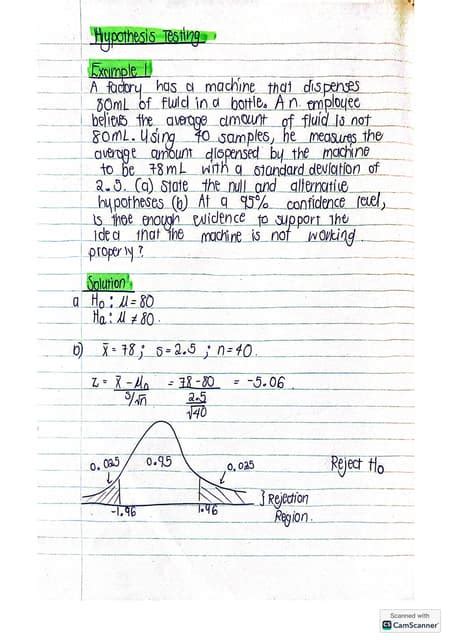 Hypothesis Testing
Example 1
A factory has a machine that dispenses
80mL of fluid in a bottle. An employee
believes the average amount of fluid is not
80mL. Using 40 samples, he measures the
average amount dispensed by the machine
to be 78mL with a standard deviation of
2.5. (a) State the null and alternative
hypotheses (b) At a 95% confidence level,
is there enough evidence to support the
idea that the machine is not working
properly?
Solution:
a H₀: μ = 80
Ha: μ ≠ 80.
b) x̄ = 78; s = 2.5; n = 40.
z = x̄ - μ₀ / s/√n = 78 - 80 / 2.5/√40 = -5.06
0.025 0.95 0.025 Reject H₀
-1.96 1.96 } Rejection
Region.
Scanned with
CS CamScanner